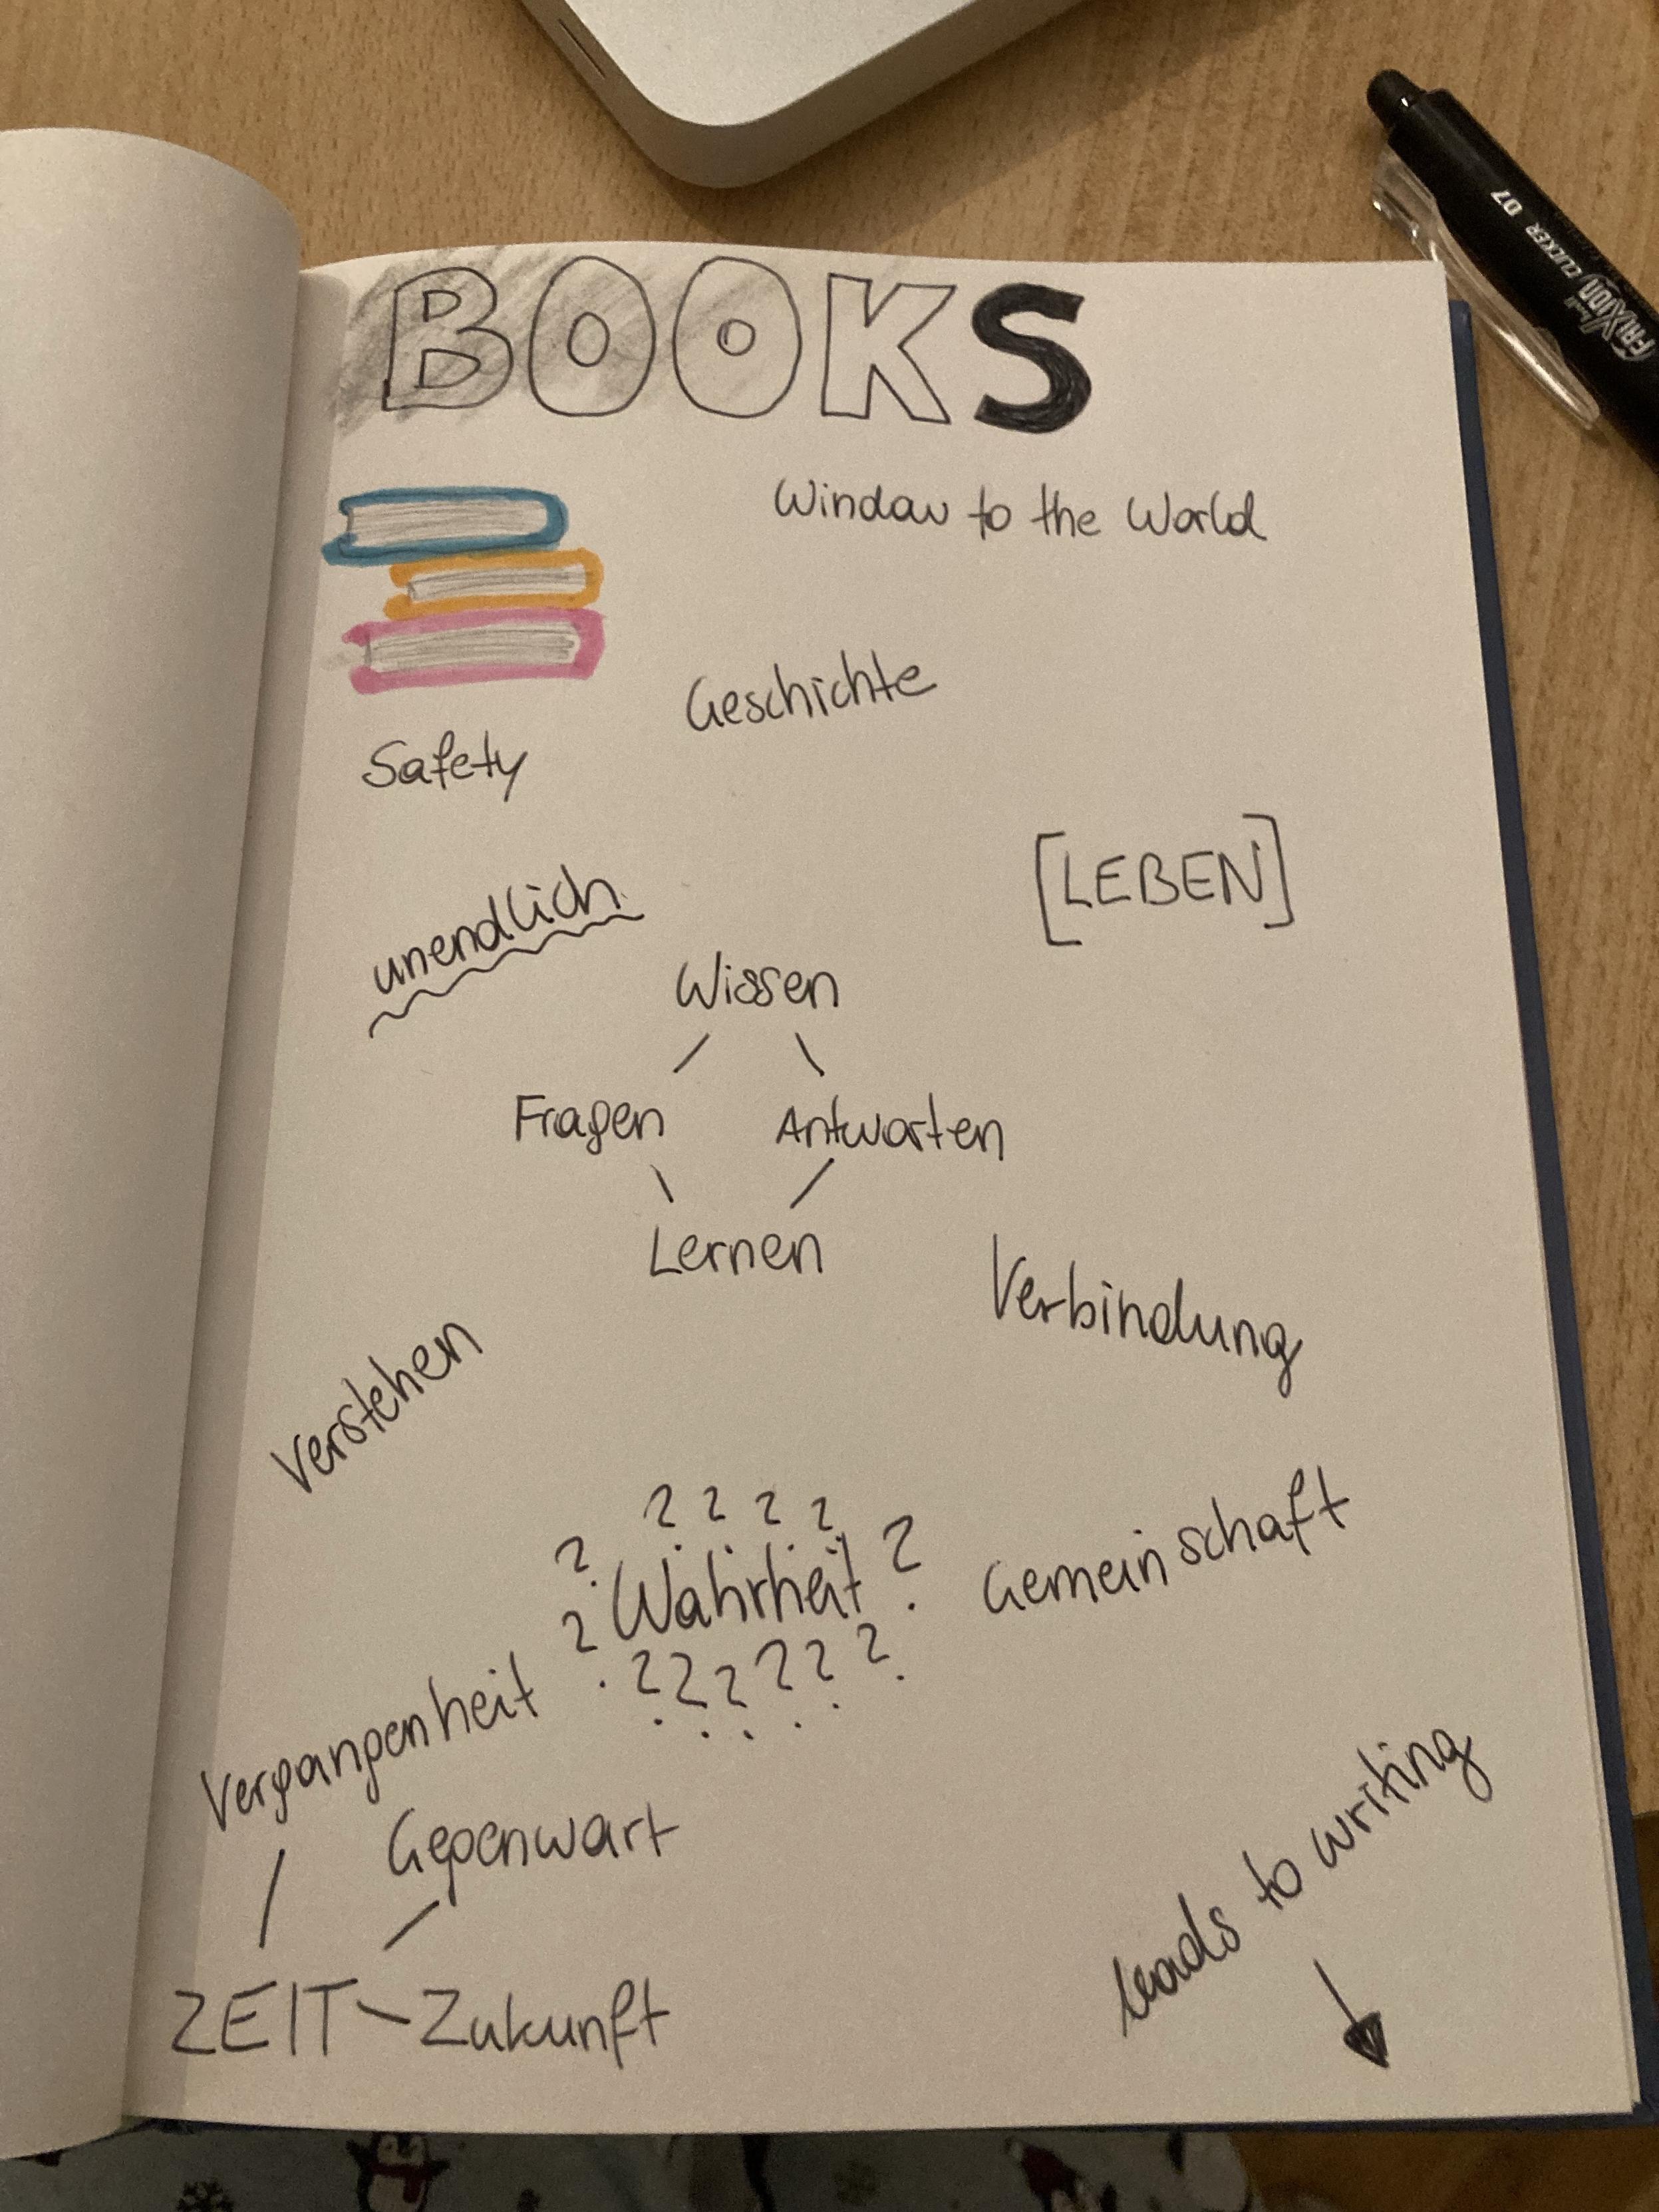 BOOKS
Window to the World
Geschichte
Safety
[LEBEN]
unendlich
Wissen
Fragen Antworten
Lernen
Verbindung
Verstehen
? ? ? ?
? Wahrheit ?
?
? ? ? ? ? ?
Gemeinschaft
Vergangenheit
Gegenwart
ZEIT - Zukunft
leads to writing
FRIXION CLICKER 07